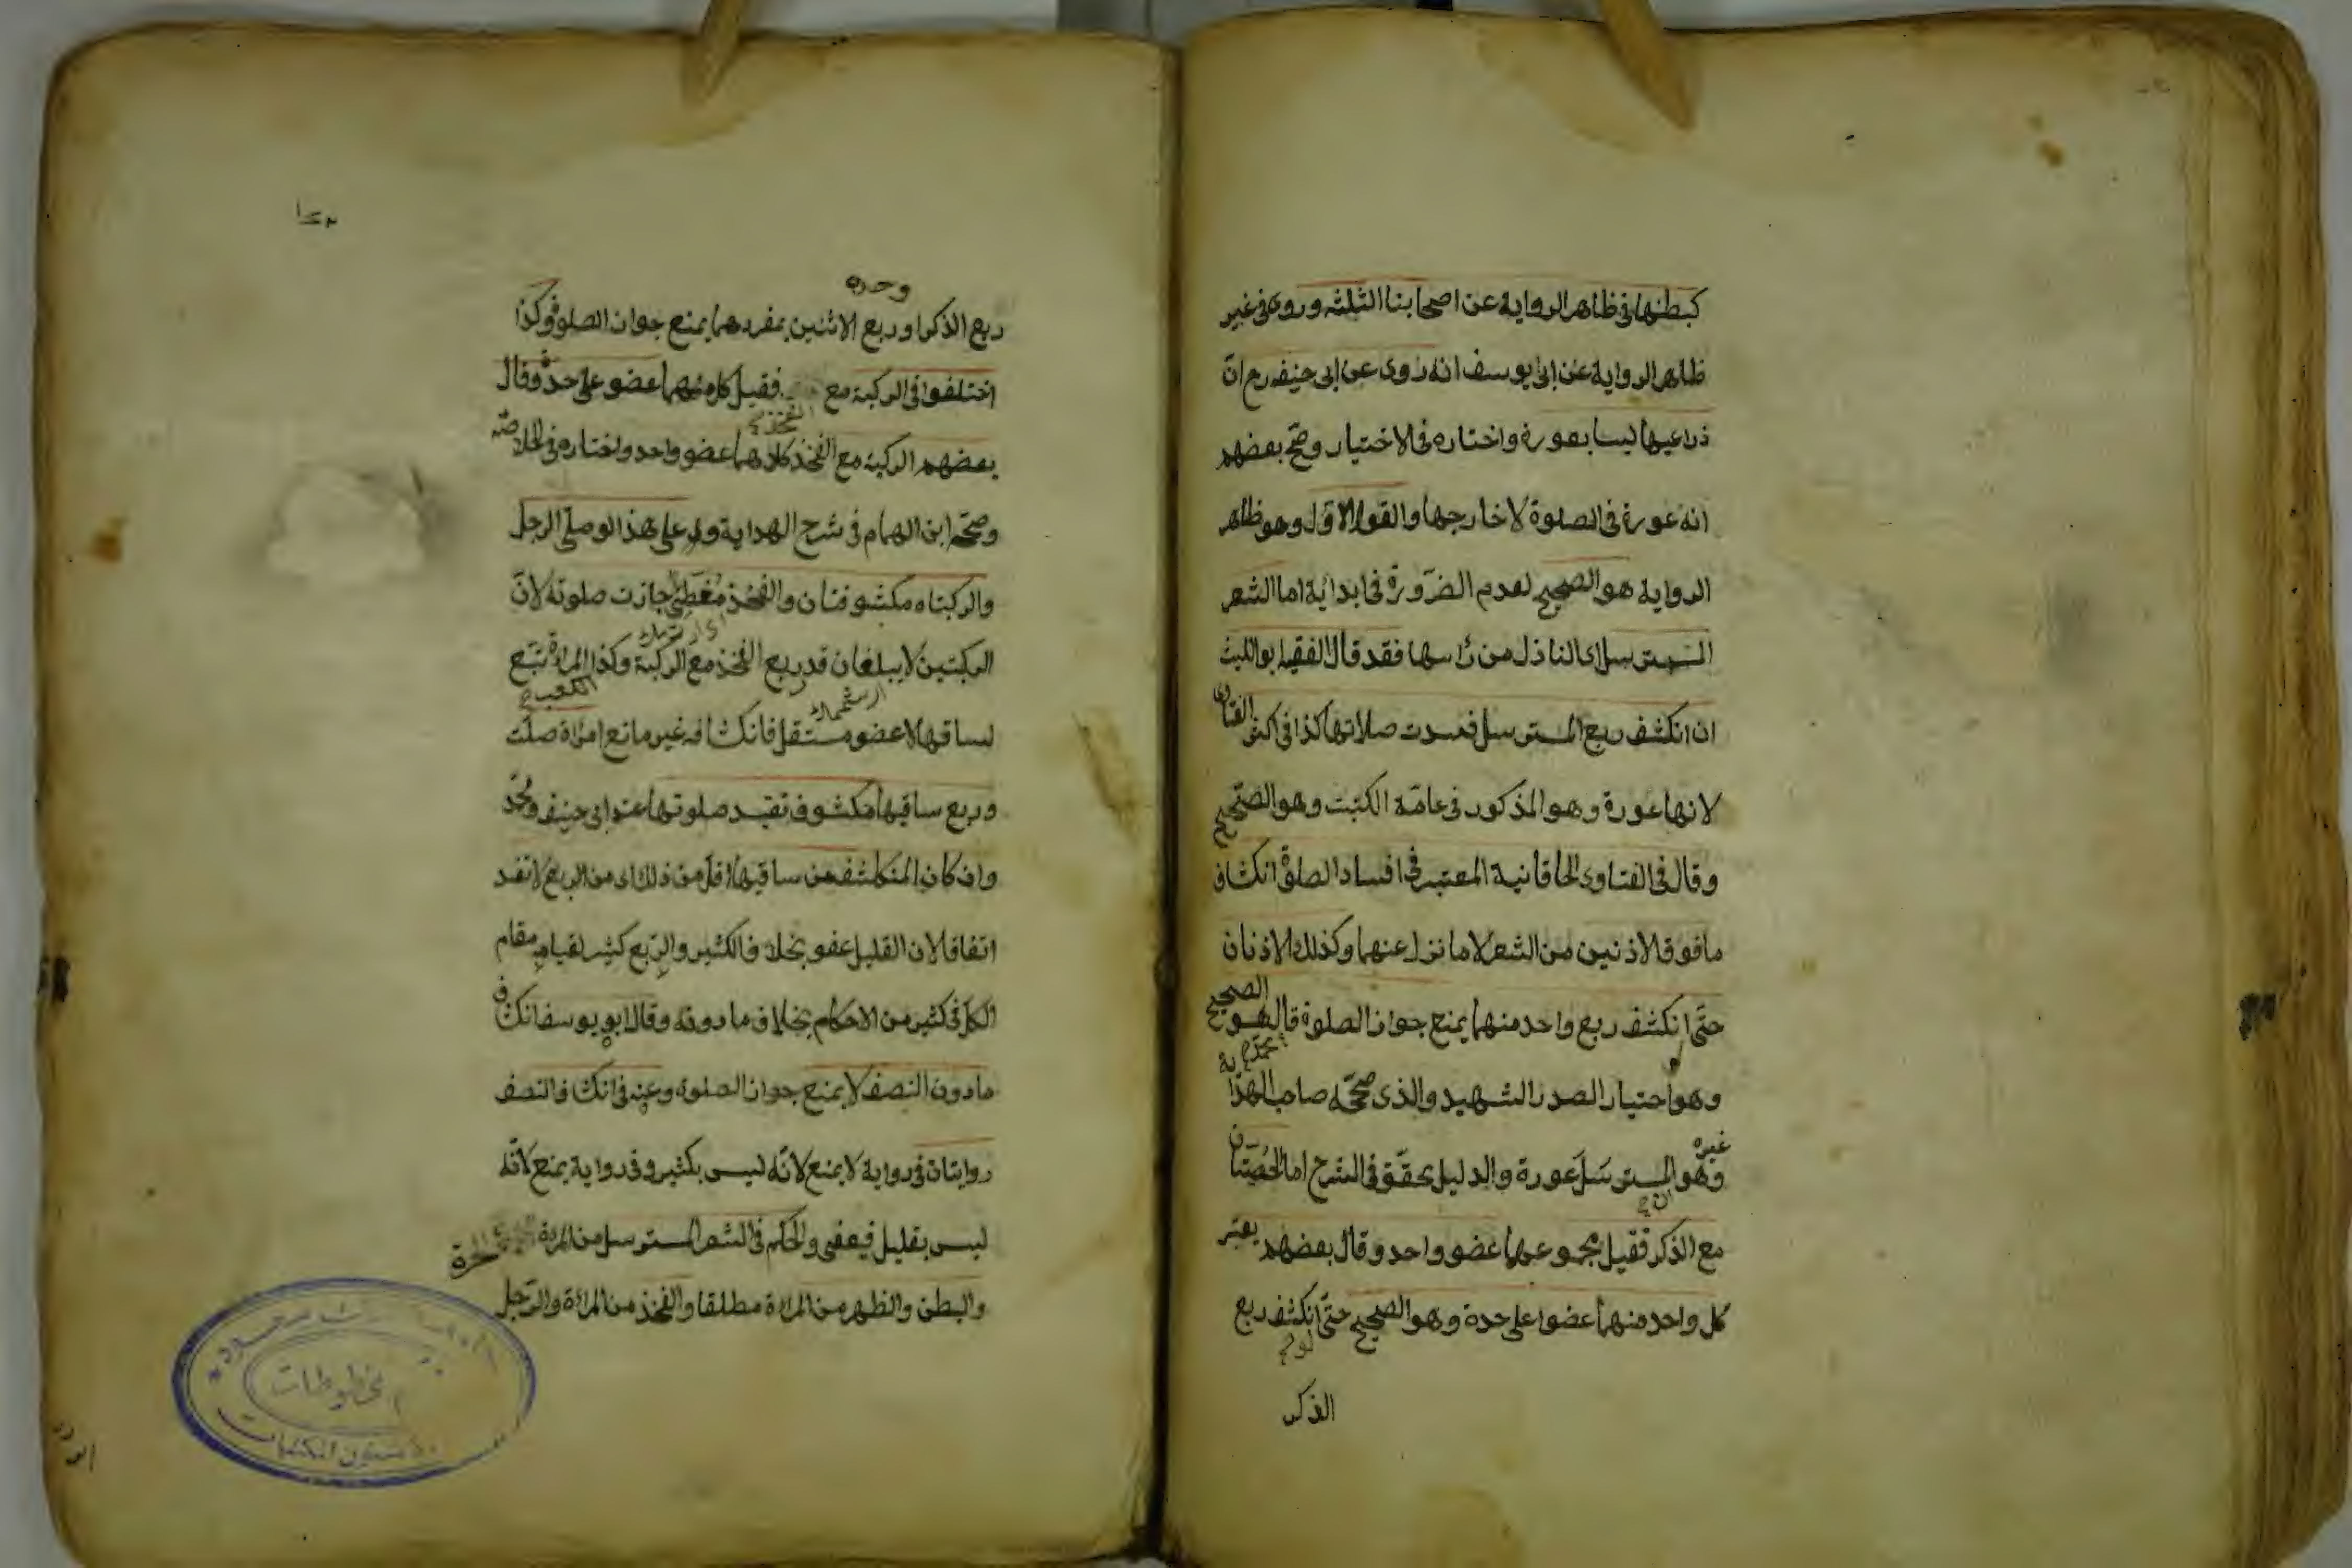 كبطنها فى ظاهر الرواية عن اصحابنا الثلثه وروى فى غير
ظاهر الرواية عن ابى يوسف انه روى عن ابى حنيفه رح انّ
ذراعيها ليسا بعورة واختاره فى الاختيار وصحّ بعضهم
انه عورة فى الصلوة لا خارجها والقول الاوّل وهو ظاهر
الرواية هو الصحيح لعدم الضرورة فى ابدائية اما الشعر
المسترسل اى النازل من رأسها فقد قال الفقيه ابو الليث
ان انكشف ربع المسترسل فسدت صلاتها كذا فى اكثر الفتاوى
لانها عورة وهو المذكور فى عامّة الكتب وهو الصّحيح
وقال فى الفتاوى الخاقانية المعتبر فى افساد الصلوة انكشاف
ما فوق الاذنين من الشعر لا ما نزل عنهما وكذلك الاذنان
حتّى انكشف ربع واحد منهما يمنع جواز الصلوة قال هو الصحيح
وهو اختيار الصدر الشهيد والذى صحّحه صاحب الهداية
غيره
وهو المسترسل عورة والدليل يحقّق فى الشرح اما الخصيتان
مع الذكر فقيل مجموعهما عضو واحد وقال بعضهم يعتبر
كل واحد منهما عضوا على حدة وهو الصحيح حتّى انكشف ربع
الذكر
وحده
ربع الذكر او ربع الانثيين بمفردهما يمنع جواز الصلوة وكذا
اختلفوا فى الركبة مع الفخذ فقيل كل منهما عضو على حدة وقال
بعضهم الركبة مع الفخذ كلاهما عضو واحد واختاره فى الخلاصة
وصحّحه ابن الهمام فى شرح الهداية و على هذا لو صلّى الرجل
والركبتاه مكشوفتان والفخذ مغطّى جازت صلوته لانّ
الركبتين لا يبلغان قدر ربع الفخذ مع الركبة وكذا المرأة تتبع
الكعب
لساقها لا عضو مستقل فانكشافه غير مانع امرأة صلّت
وربع ساقيها مكشوف تفسد صلوتها عند ابى حنيفه ومحمّد
وان كان المنكشف من ساقيها اقلّ من ذلك اى من الربع لا تفسد
اتفاقا لان القليل عفو بخلاف الكثير والرّبع كثير لقيامه مقام
الكل فى كثير من الاحكام بخلاف ما دونه وقال ابو يوسف انكشاف
ما دون النصف لا يمنع جواز الصلوة وعنه فى انكشاف النصف
روايتان فى رواية لا يمنع لانّه ليس بكثير وفى رواية يمنع لانّه
ليس بقليل فيعفى والحكم فى الشعر المسترسل من المرأة الحرة
والبطن والظهر من المرأة مطلقا والفخذ من المرأة والرّجل
مخطوطات